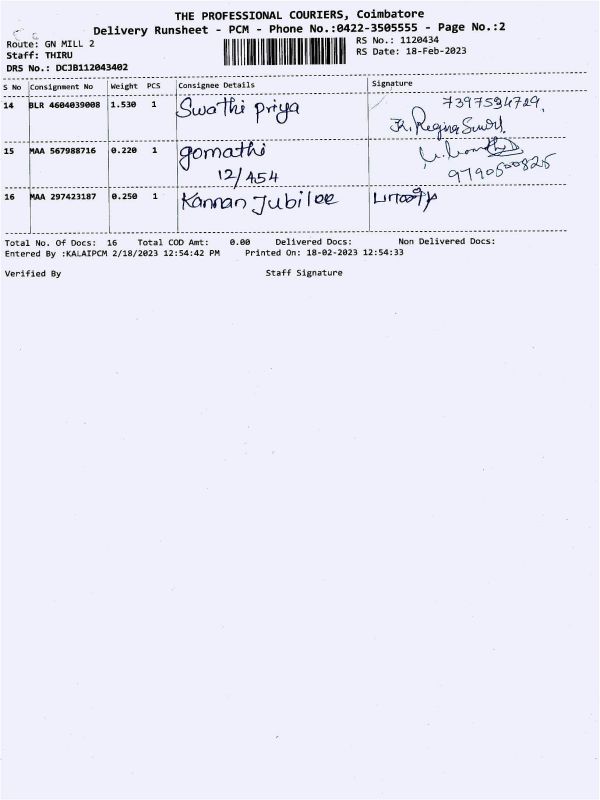 THE PROFESSIONAL COURIERS, Coimbatore
Delivery Runsheet - PCM - Phone No.:0422-3505555 - Page No.:2
Route: GN MILL 2
RS No.: 1120434
Staff: THIRU
RS Date: 18-Feb-2023
DRS No.: DCJB112043402
S No Consignment No Weight PCS Consignee Details Signature
14 BLR 4604039008 1.530 1 Swathi priya 7397594729,
15 MAA 567988716 0.220 1 gomathi
12/454 9790500825
16 MAA 297423187 0.250 1 Kannan Jubilee
Total No. Of Docs: 16 Total COD Amt: 0.00 Delivered Docs: Non Delivered Docs:
Entered By :KALAIPCM 2/18/2023 12:54:42 PM Printed On: 18-02-2023 12:54:33
Verified By Staff Signature